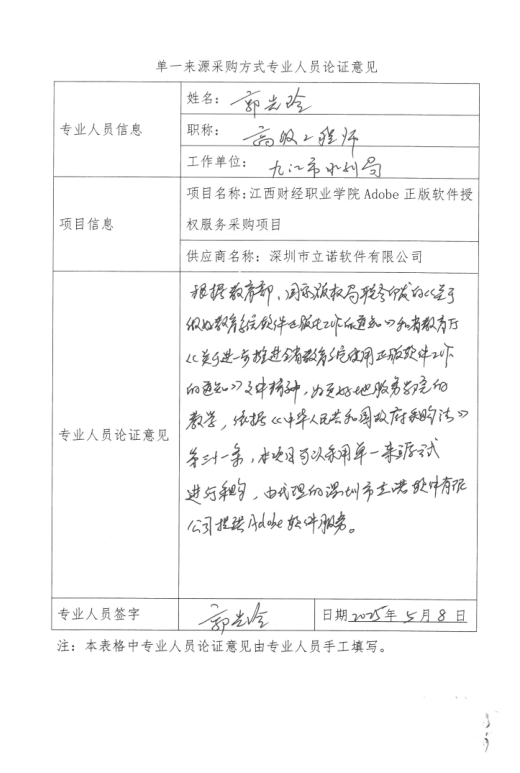 单一来源采购方式专业人员论证意见
专业人员信息
姓名：郭光玲
职称：高级工程师
工作单位：九江市水利局
项目信息
项目名称：江西财经职业学院 Adobe 正版软件授
权服务采购项目
供应商名称：深圳市立诺软件有限公司
专业人员论证意见
根据教育部、国家版权局联合印发的《关于
做好教育系统软件正版化工作的通知》和省教育厅
《关于进一步推进全省教育系统使用正版软件工作
的通知》文件精神，为更好地服务学院的
教学，依据《中华人民共和国政府采购法》
第三十一条，本项目可以采用单一来源方式
进行采购，由代理的深圳市立诺软件有限
公司提供Adobe软件服务。
专业人员签字
郭光玲
日期 2025年 5月 8 日
注：本表格中专业人员论证意见由专业人员手工填写。